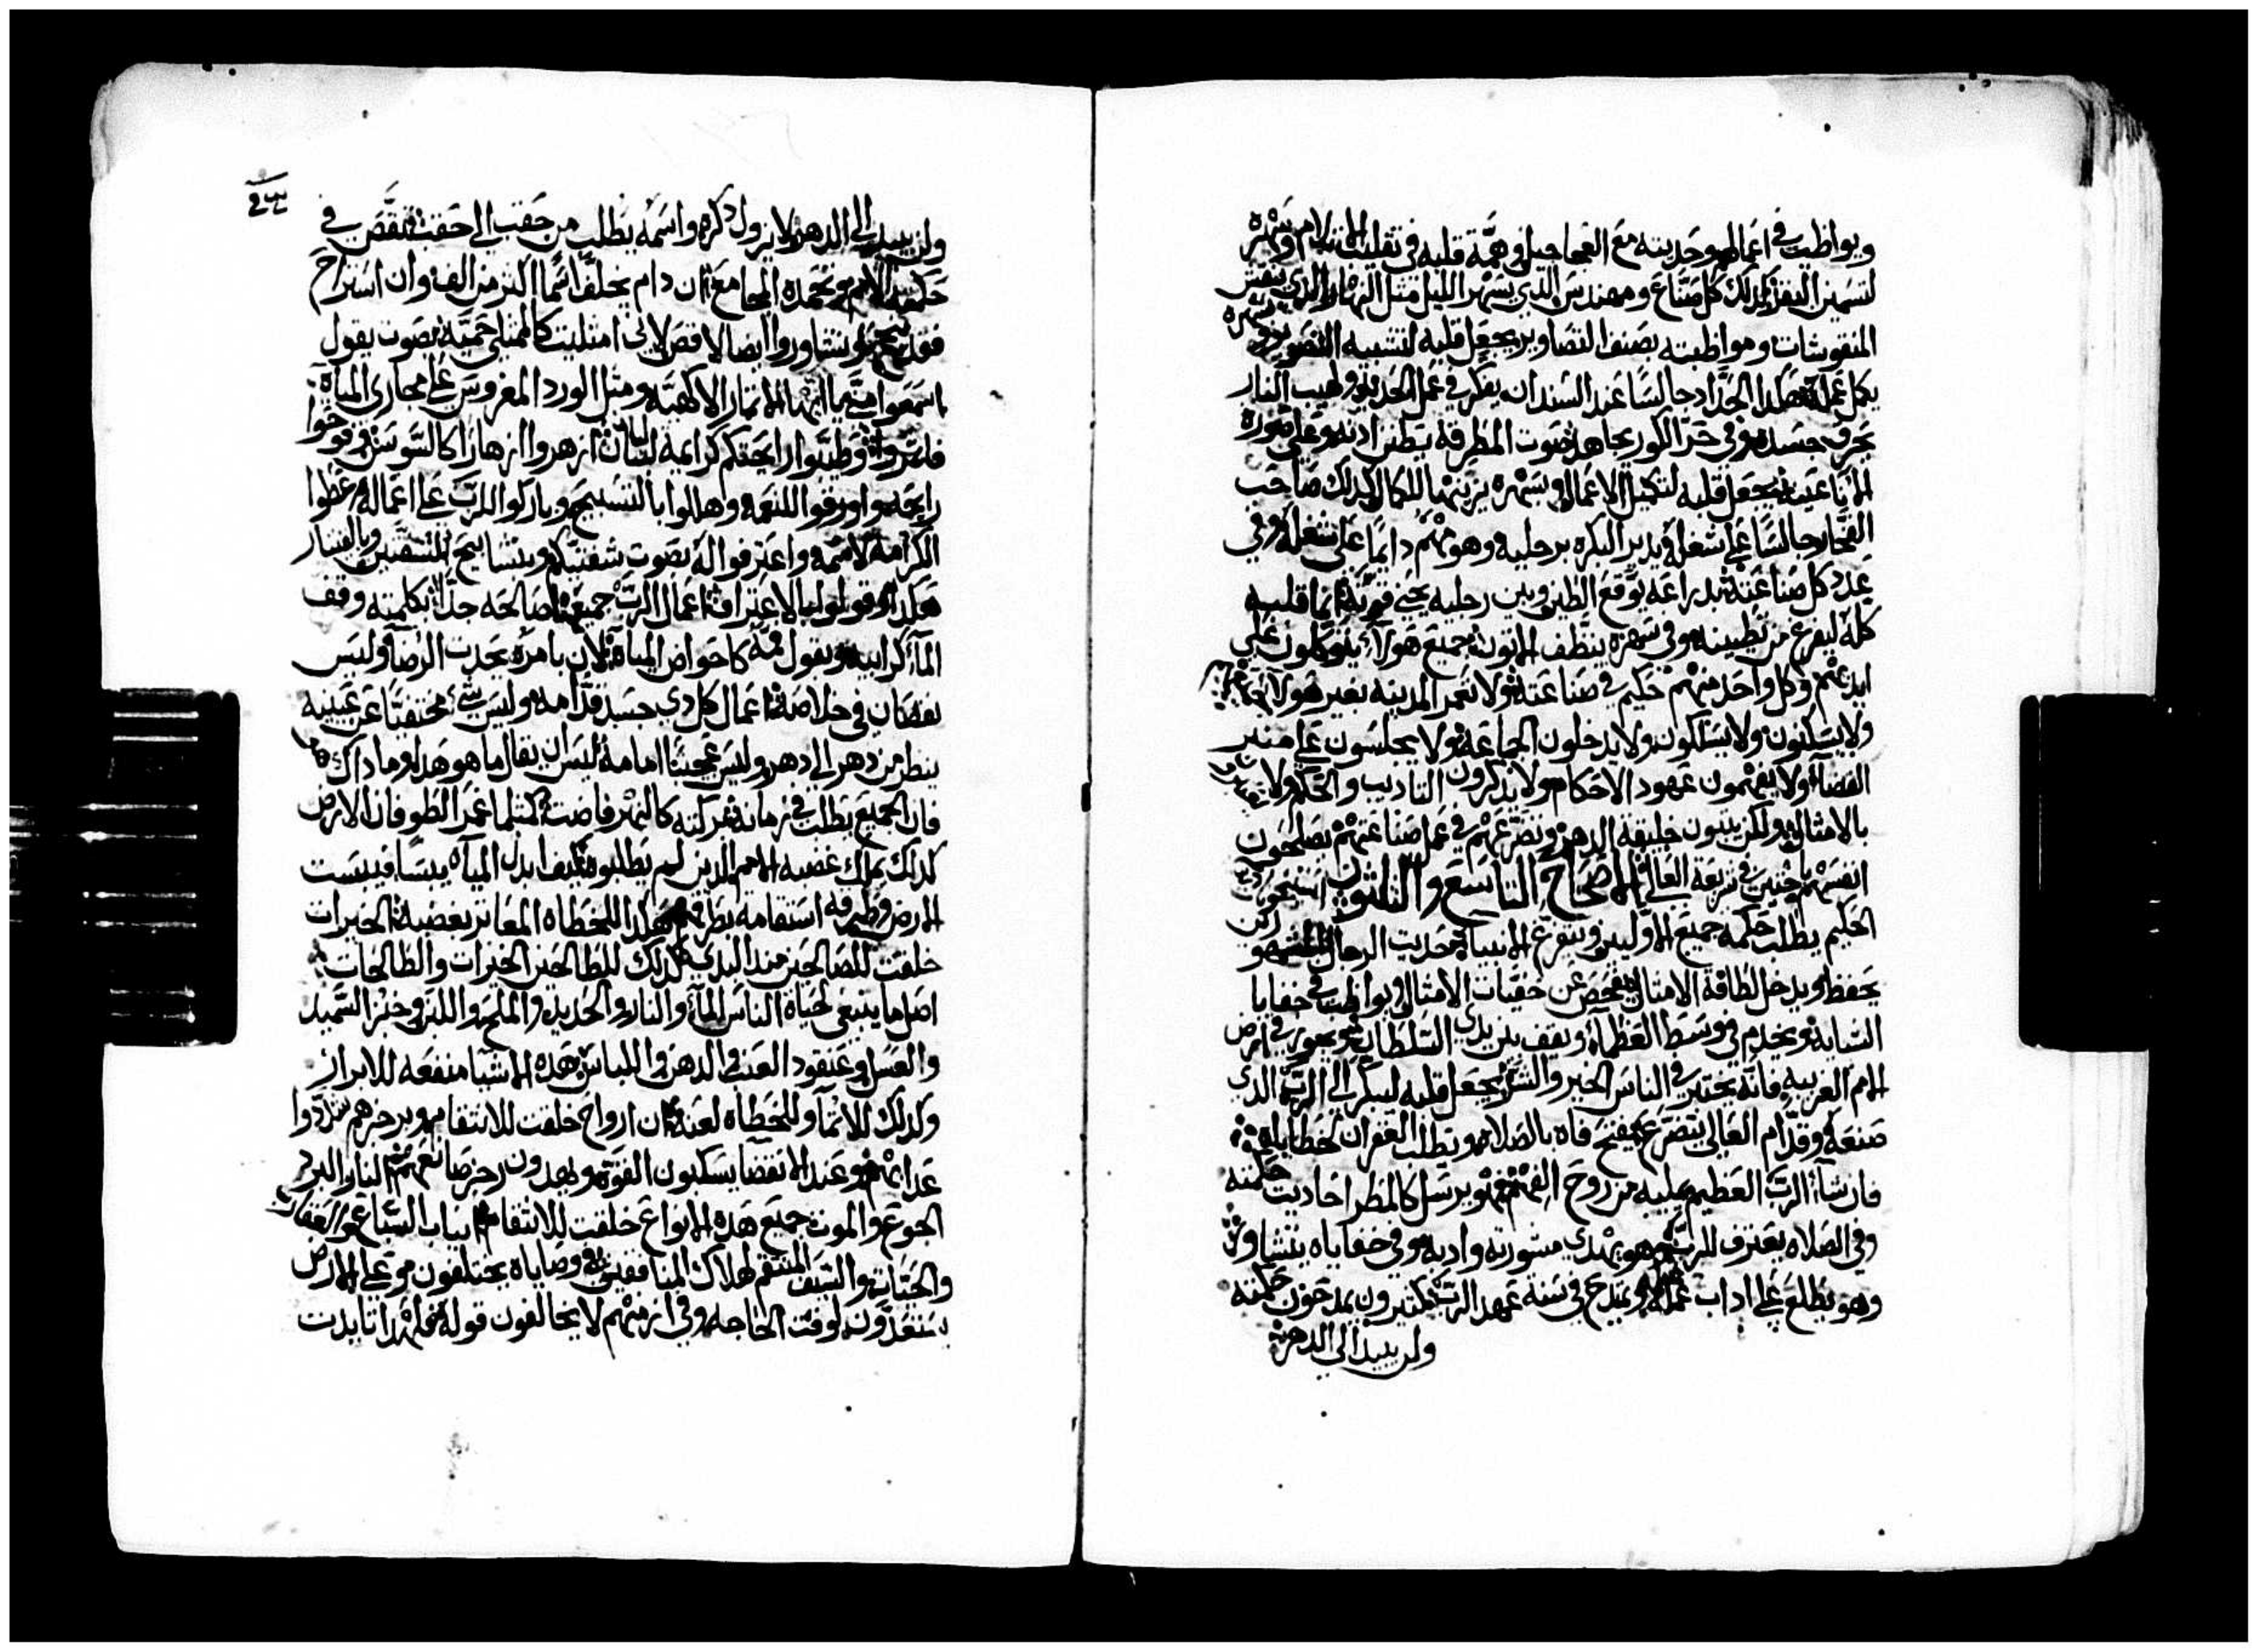 ويواظب في اعمالهم وحديثه مع العجاجيل وهمّة قلبه في تقليب الاتلام وسهره
لتسمين البقر كذلك كل صنّاع ومهندس الذي يسهر الليل مثل النهار والذي ينقش
المنقوشات ومواظبته يصنف التصاوير يجعل قلبه لتشبيه التصوير وبسهره
يكمل عمله هكذا الحدّاد جالسًا عند السندان يفكر في عمل الحديد ولهيب النار
يحرق جسده وفي حرّ الكور يجاهد صوت المطرقه يطن ادنه وعلى صورة
الاناء عينه يجعل قلبه لتكميل الاعمال وبسهره يزينها للكمال كذلك صاحب
الفخّار جالسًا على شغله يدير البكره برجليه وهو مهتم دايمًا على شغله وفي
عدد كل صناعته بدراعه يوقع الطين وبين رجليه يحني قوته انما قلبه
كله ليفرغ من تطيينه وفي سهره ينظف الاتون جميع هولاء يتوكلون على
ايديهم وكل واحد منهم حكيم في صناعته ولا تعمر المدينه بغير هولاء
ولا يسكنون ولا يسلكون ولا يدخلون الجماعة ولا يجلسون على منبر
القضاء ولا يفهمون عهود الاحكام ولا يذكرون التاديب والحكم ولا
بالامثال ولكن يبنون خليقة الدهر وتضرعهم في عمل صناعتهم يصلحون
انفسهم باحثين في شريعة العالي الاصحاح التاسع والثلثون
الحكيم يطلب حكمة جميع الاولين ويتفرغ للانبياء حديث الرجال المشهورين
يحفظ ويدخل لطافة الامثال يفحص عن خفيات الامثال ويواظب في خفايا
السايه ويخدم في وسط العظماء ويقف بين يدي السلطان ويعبر في ارض
الامم الغريبه فانه يختبر في الناس الخير والشر يجعل قلبه ليبكر الى الربّ الذي
صنعه وقدّام العالي يتضرع يفتح فاه بالصلاه ويطلب الغفران لخطاياه
فان شاء الربّ العظيم يمليه من روح الفهم فهو يرسل كالمطر احاديث حكمته
وفي الصلاه يعترف للربّ وهو يهدي مشورته وادبه وفي خفاياه يتشاور
وهو يطلع على اداب علمه ويمتدح في سنة عهد الربّ كثيرون يمدحون حكمته
ولن يبيد الى الدهر
ولن يبيد الى الدهر ولا يزول ذكره واسمه يطلب من حقب الى حقب تقصّ في
حكمته الامم وتحمده المجامع ان دام يخلف اسمًا اكثر من الف وان استراح
يتشاوروا ايضا لاقص لاني امتليت كالممتلي حميّة بصوت يقول
اسمعوا منّي ايّها الاتمار الالهيّه ومثل الورد المغروس على مجاري المياه
فاثمروا وطيّبوا رايحتكم كرايمة لبنان ازهروا ازهارًا كالسوسن وفوحوا
رايحه واورقوا للنعمه وهللوا بالتسبيح وباركوا للربّ على اعماله وعظوا
الكرامة لاسمه واعترفوا له بصوت شفتيكم وبتسابيح الشفتين وبالقيتار
هكذا وقولوا بالاعتراف اعمال الربّ جميعها صالحه جدًّا بكلمته وقف
الماء كرابيه وبقول فمه كاحواض المياه لان بامره يحدث الرضا وليس
نقصان في خلاصه اعمال كل ذي جسد قدّامه وليس شيء مختفيًا عن عينيه
ينظر من دهر الى دهر وليس عجيبًا امامه ليس ان يقال ما هو هذا وما ذاك
فان الجميع يطلب في زمانه بركته كالنهر فاضت كمثلما غمر الطوفان الارض
كذلك يملك غضبه الامم الذين لم يطلبوه كيف ابدل المياه يبسًا فيبست
الارض وطرقه استقامه بطرقهم هكذا للخطاه المعاثر بغضبه الخيرات
خلقت للصالحين منذ البدي كذلك للطالحين الخيرات والطالحات
اصل ما ينبغي لحياة الناس الماء والنار والحديد والملح واللبن وخبز السّميد
والعسل وعنقود العنب والدهن واللباس هذه الاشيا منفعه للابرار
وكذلك للاثماء وللخطاه لعنة ان ارواح خلقت للانتقام وبرجزهم شدّدوا
عذابهم وعند الانقضا يسكبون القوة ويهدون رجز صانعهم النار والبرد
الجوع والموت جميع هذه الانواع خلقت للانتقام انياب السّباع والعقارب
والحيّات والسّيف المنتقم لهلاك المنافقين في وصاياه يحتلفون وعلى الارض
يستعدّون لوقت الحاجه وفي ازمنتهم لا يخالفون قوله فلهذا تايدت